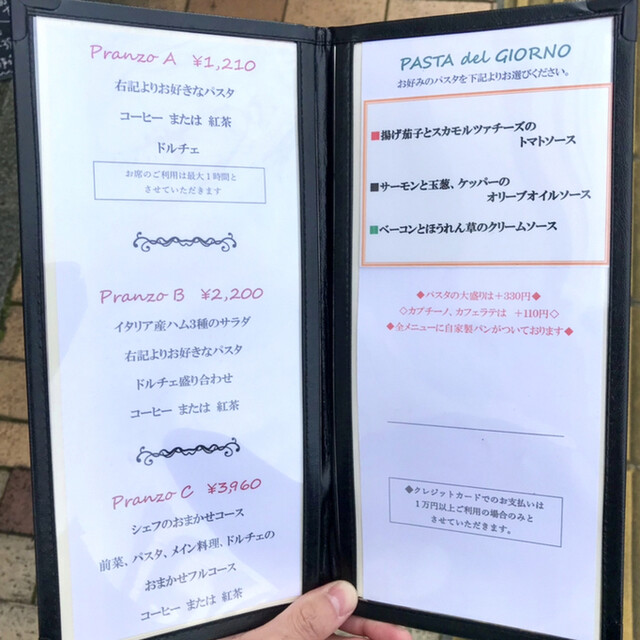 Pranzo A ¥1,210
右記よりお好きなパスタ
コーヒー または 紅茶
ドルチェ
お席のご利用は最大1時間と
させていただきます
Pranzo B ¥2,200
イタリア産ハム3種のサラダ
右記よりお好きなパスタ
ドルチェ盛り合わせ
コーヒー または 紅茶
Pranzo C ¥3,960
シェフのおまかせコース
前菜、パスタ、メイン料理、ドルチェの
おまかせフルコース
コーヒー または 紅茶
PASTA del GIORNO
お好みのパスタを下記よりお選びください。
■揚げ茄子とスカモルツァチーズの
トマトソース
■サーモンと玉葱、ケッパーの
オリーブオイルソース
■ベーコンとほうれん草のクリームソース
◆パスタの大盛りは+330円◆
◇カプチーノ、カフェラテは +110円◇
◆全メニューに自家製パンがついております◆
◆クレジットカードでのお支払いは
1万円以上ご利用の場合のみと
させていただきます。